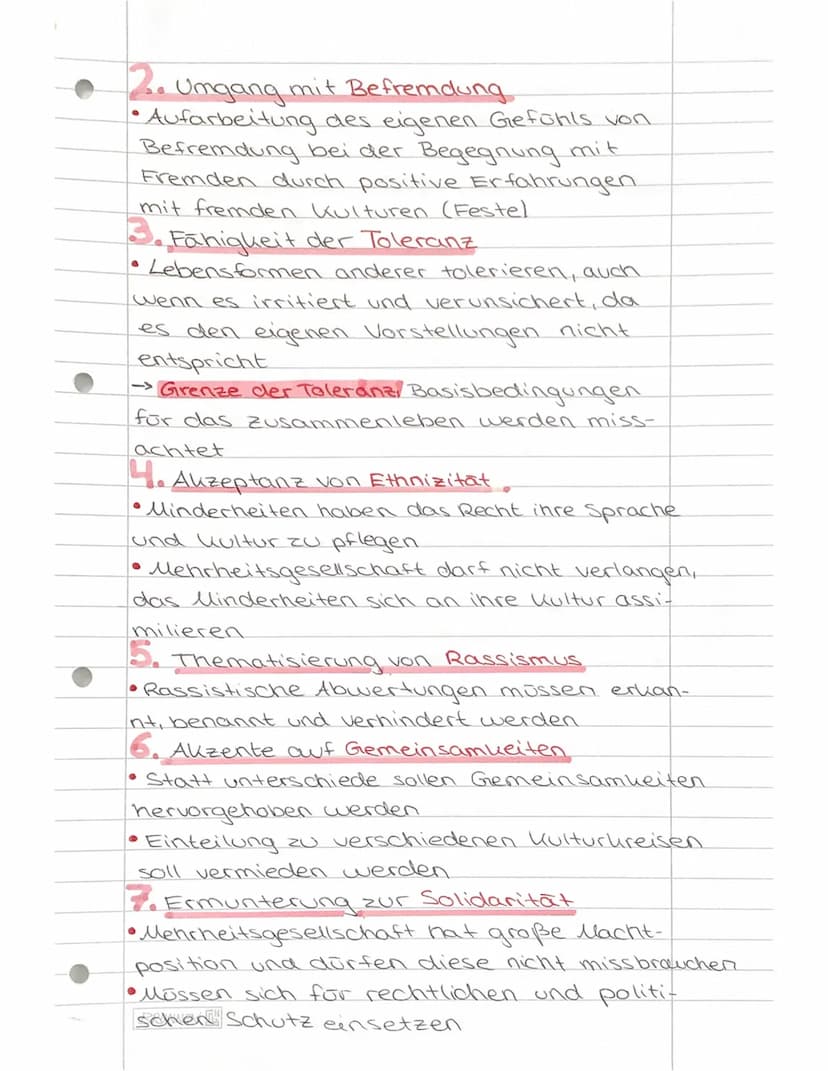 2. Umgang mit Befremdung
• Aufarbeitung des eigenen Gefühls von
Befremdung bei der Begegnung mit
Fremden durch positive Erfahrungen
mit fremden Kulturen (Feste)
3. Fähigkeit der Toleranz
• Lebensformen anderer tolerieren, auch
wenn es irritiert und verunsichert, da
es den eigenen Vorstellungen nicht
entspricht
→ Grenze der Toleranz: Basisbedingungen
für das zusammenleben werden miss-
achtet
4. Akzeptanz von Ethnizität.
• Minderheiten haben das Recht ihre Sprache
und Kultur zu pflegen
• Mehrheitsgesellschaft darf nicht verlangen,
das Minderheiten sich an ihre Kultur assi-
milieren
5. Thematisierung von Rassismus
• Rassistische Abwertungen müssen erkan-
nt, benannt und verhindert werden
6. Akzente auf Gemeinsamkeiten
• Statt unterschiede sollen Gemeinsamkeiten
hervorgehoben werden
• Einteilung zu verschiedenen Kulturkreisen
soll vermieden werden
7. Ermunterung zur Solidarität
• Mehrheitsgesellschaft hat große Macht-
position und dürfen diese nicht missbrauchen
• Müssen sich für rechtlichen und politi-
schen Schutz einsetzen